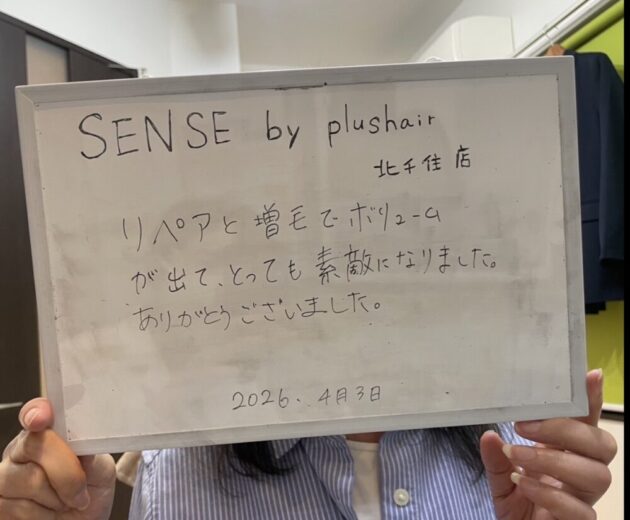 SENSE by plushair
北千住店
リペアと増毛でボリューム
が出て、とっても素敵になりました。
ありがとうございました。
2026. 4月3日